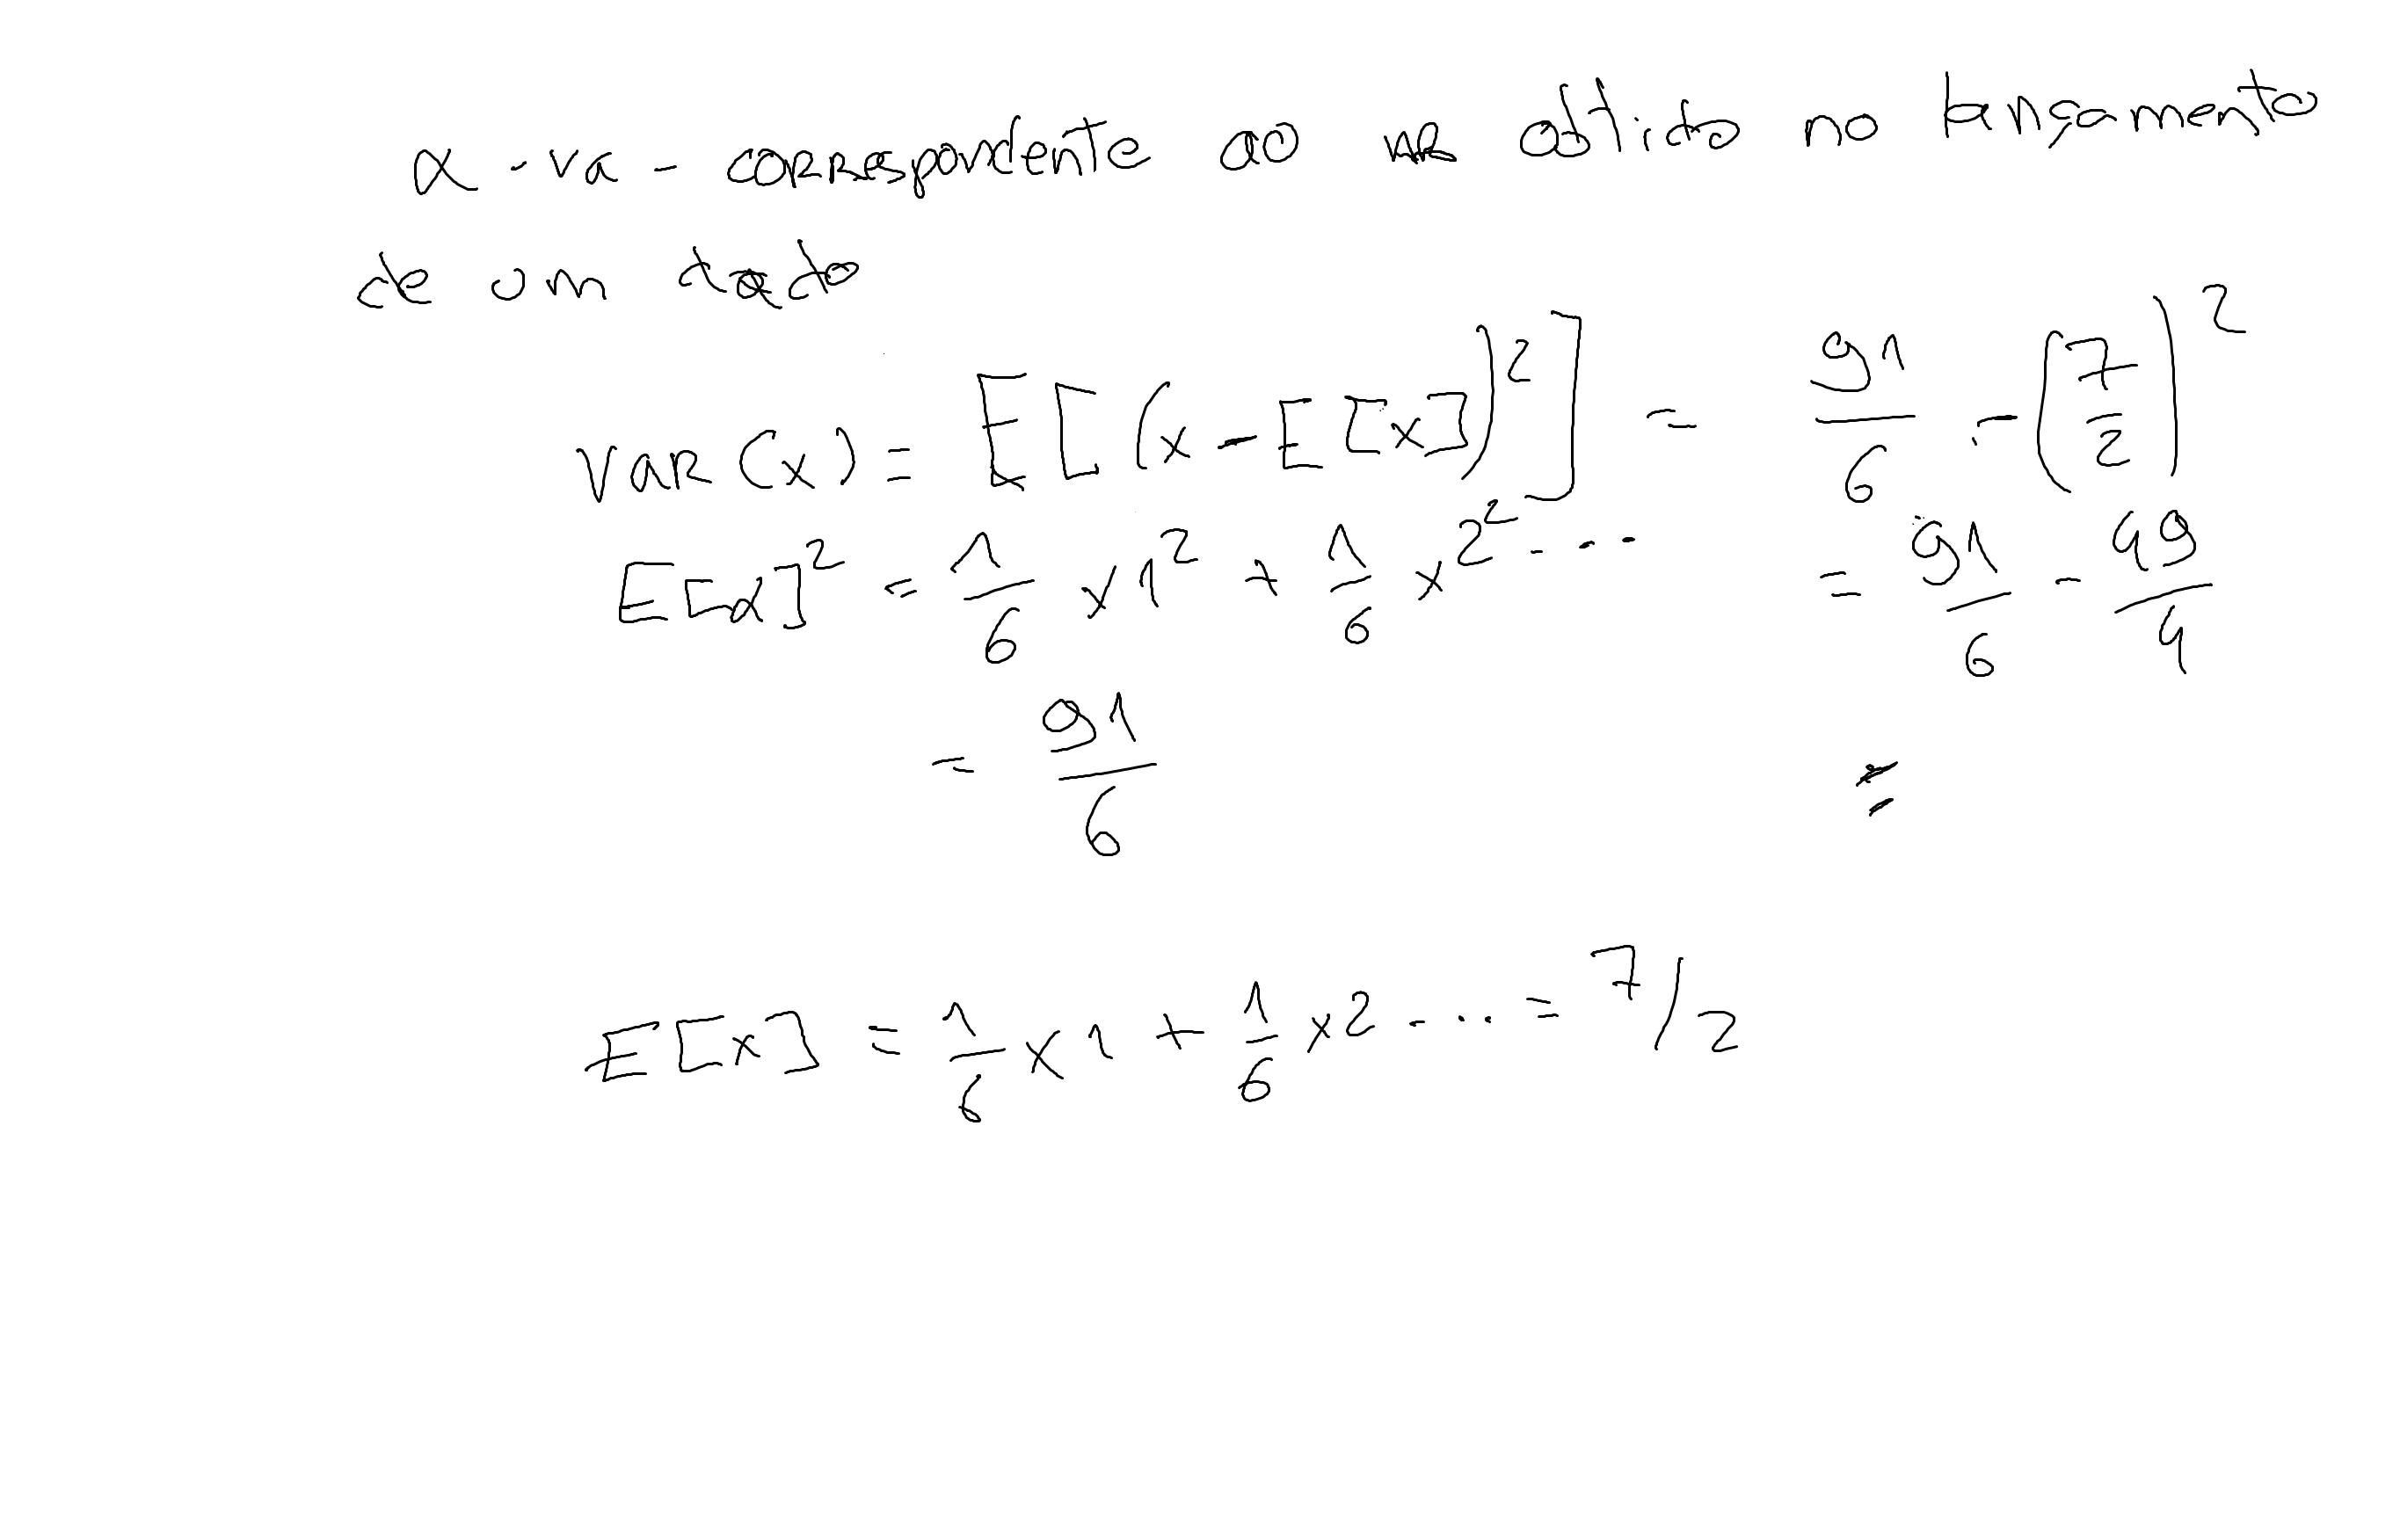 x - va - correspondente ao nº obtido no lançamento
de um dado
Var(x) = E[(x - E[x])²] = 91/6 - (7/2)²
E[x]² = 1/6 x 1² + 1/6 x 2² ... = 91/6 - 49/4
= 91/6 =
E[x] = 1/6 x 1 + 1/6 x 2 ... = 7/2